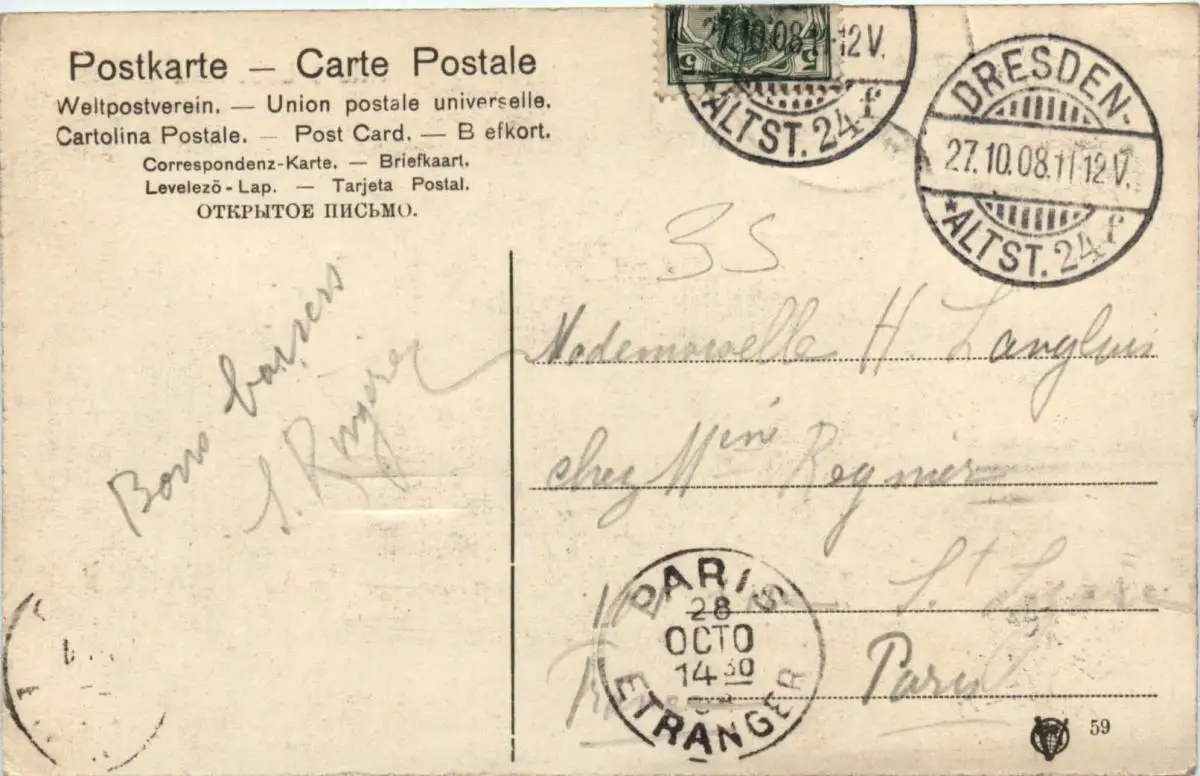 Postkarte — Carte Postale
Weltpostverein. — Union postale universelle.
Cartolina Postale. — Post Card. — B efkort.
Correspondenz-Karte. — Briefkaart.
Levelező - Lap. — Tarjeta Postal.
ОТКРЫТОЕ ПИСЬМО.
5 5
27.10.08.11-12V.
*ALTST. 24 f
DRESDEN-
27.10.08.11-12V.
*ALTST. 24 f
Bons baisers
Mademoiselle H. Langlois
chez Mme Regnier
St
Paris
PARIS
28
OCTO
14 30
ETRANGER
59